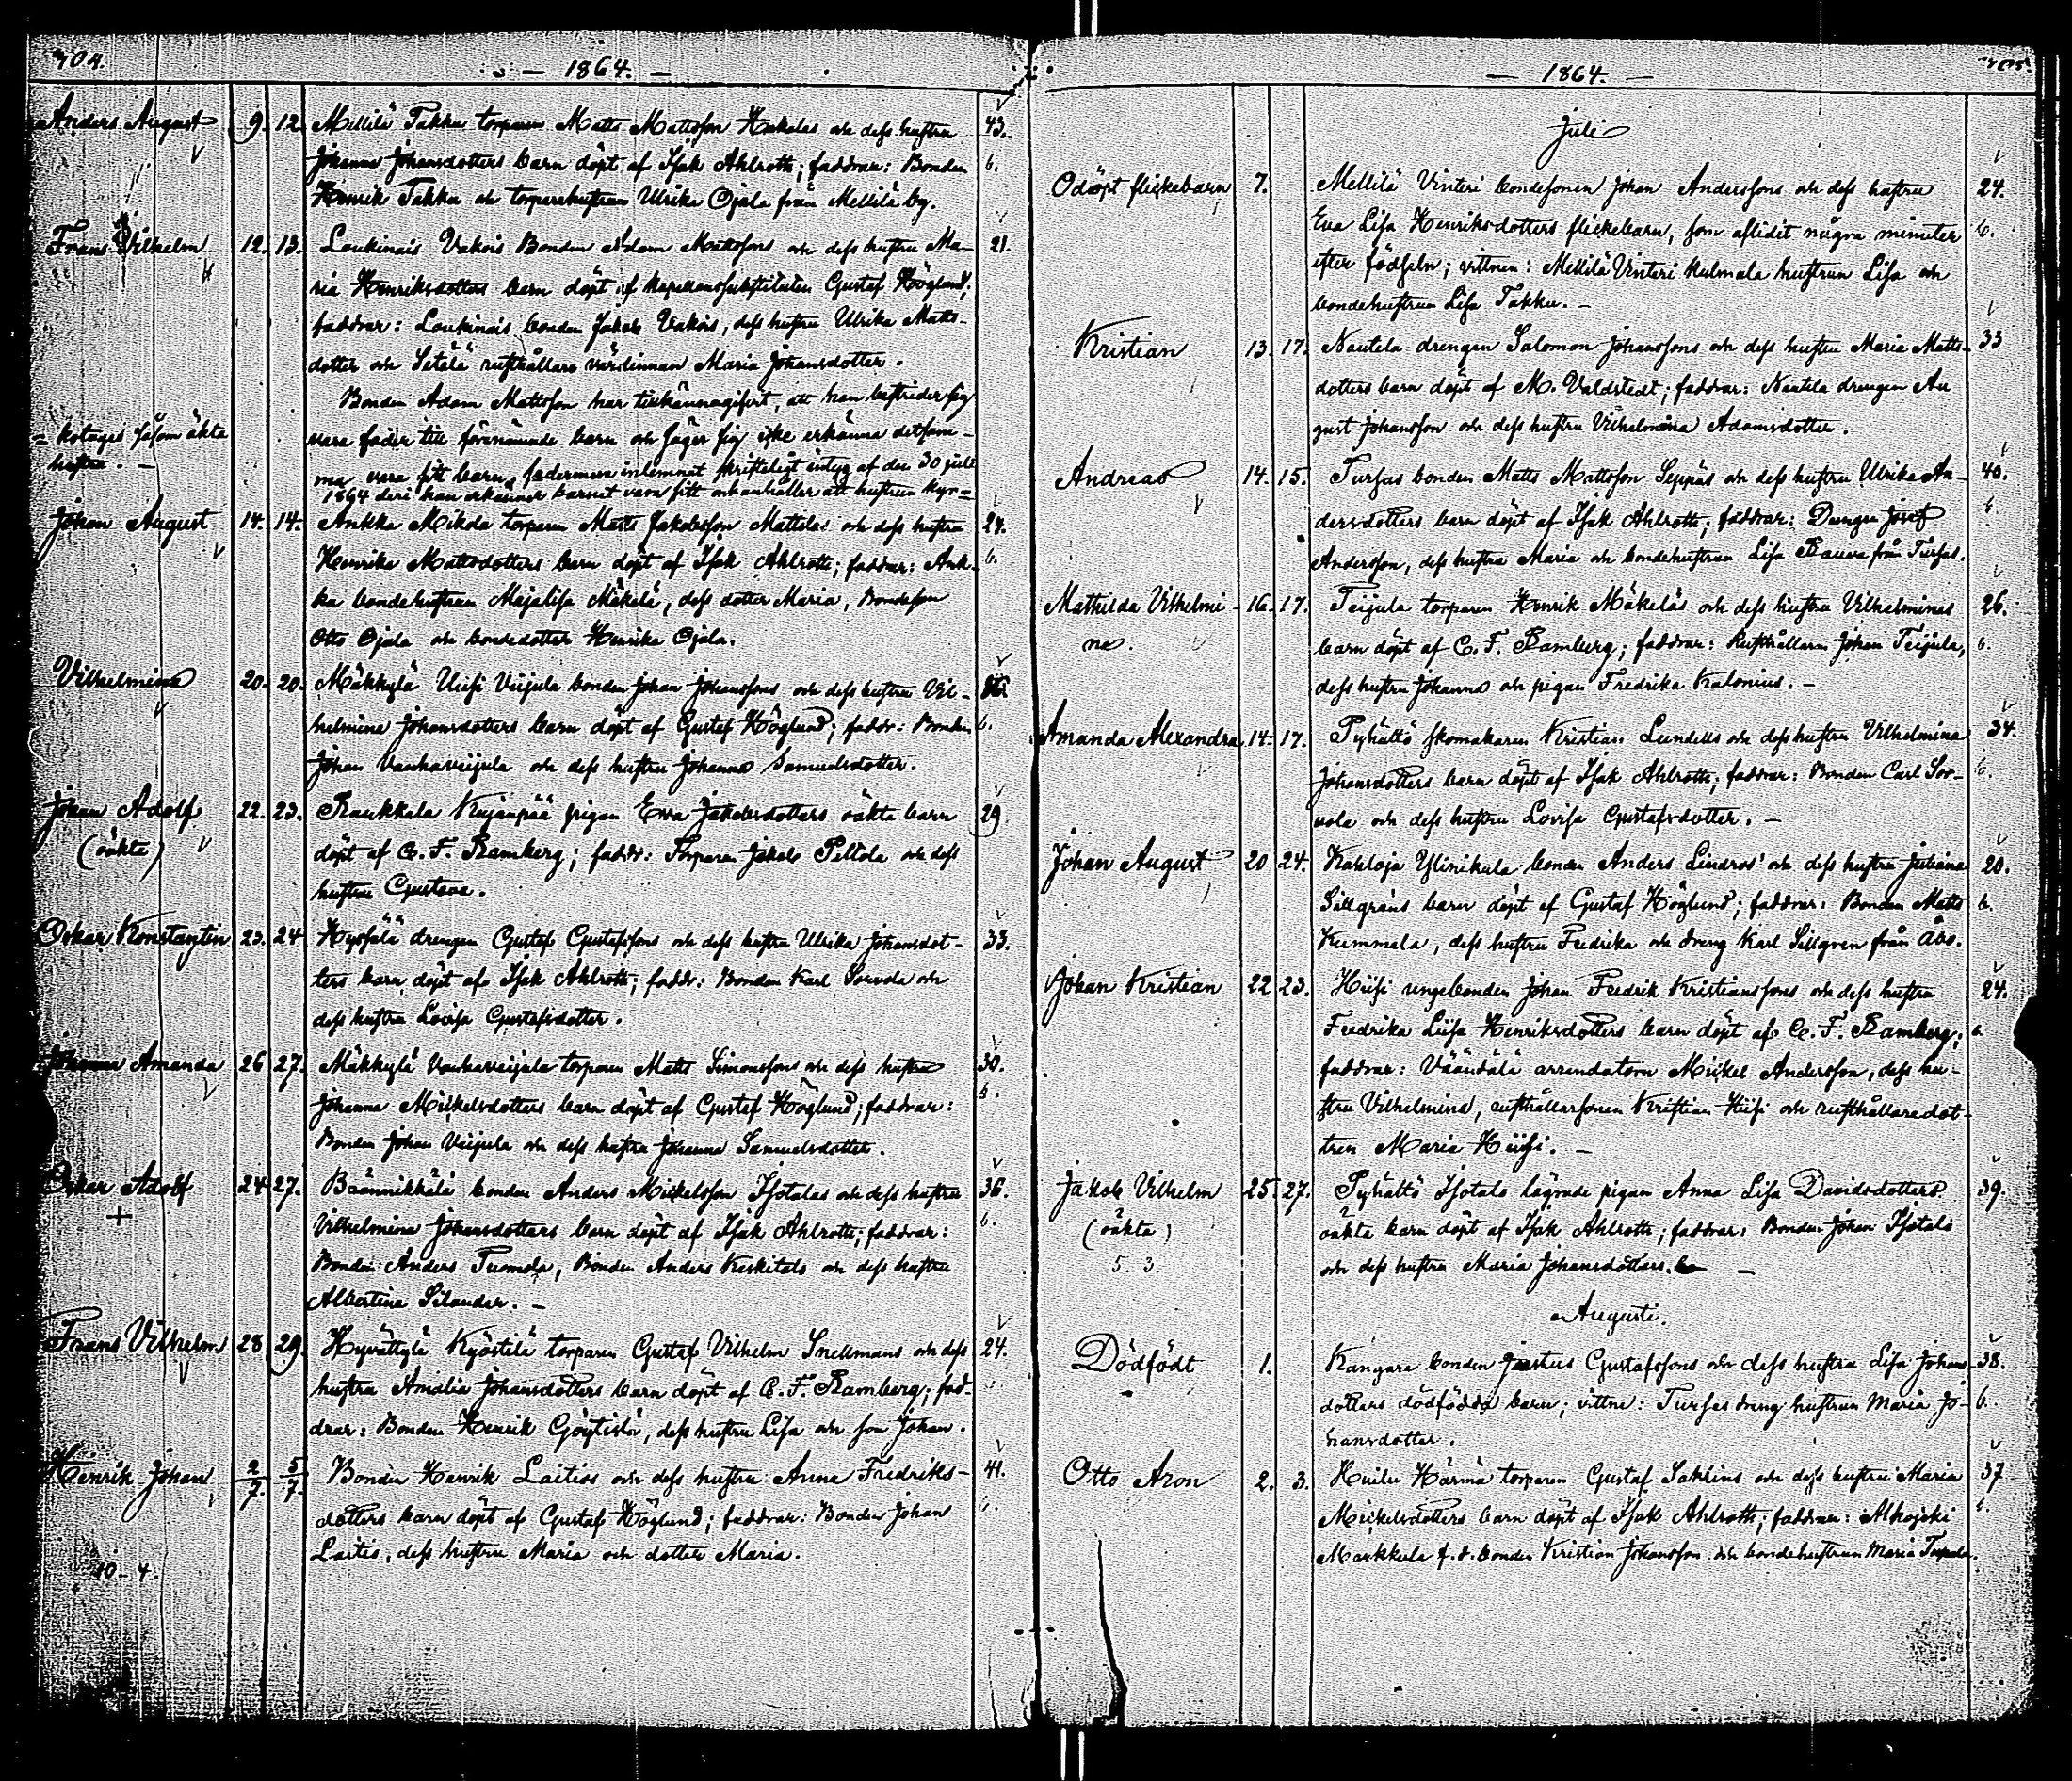 704.
— 1864. —
Anders August 9. 12. Mellilä Takku torparen Matts Mattsson Hakalas och dess hustru 43.
Johanna Johansdotters barn döpt af Isak Ahlroth; faddrar: Bonden 6.
Henrik Takku och torparehustrun Ulrika Ojala från Mellilä by.
Frans Vilhelm 12. 13. Loukinais Vakois Bonden Adam Mattsons och dess hustru Ma- 21.
ria Henriksdotters barn döpt af kapellanssubstituten Gustaf Höglund;
faddrar: Loukinais bonden Jakob Vakois, dess hustru Ulrika Matts-
dotter och Setälä rusthållare värdinnan Maria Johansdotter.
Bonden Adam Mattsson har tillkännagifvit, att han bestrider sig
vara fader till förenämnde barn och säger sig icke erkänna detsam-
ma vara sitt barn, fadermera inlemnat skrifteligt intyg af den 30 juli
1864 deri han erkänner barnet vara sitt och anhåller att hustrun kyr=
= kotages såsom äkta
hustru. —
Johan August 14. 14. Ankka Mikola torparen Matts Jakobsson Mattilas och dess hustru 27.
Henrika Mattsdotters barn döpt af Isak Ahlroth; faddrar: Ank- 6.
ka bondehustrun Majalisa Mäkelä, dess dotter Maria, Bondeson
Otto Ojala och bondedotter Henrika Ojala.
Vilhelmina 20. 20. Mäkkylä Uusi Viijula bonden Johan Johanssons och dess hustru Vil-
helmina Johansdotters barn döpt af Gustaf Höglund; faddr: Bonden 6.
Johan Vanhaviijula och dess hustru Johanna Samuelsdotter.
Johan Adolf 22. 23. Raukkala Kujanpää pigan Eva Jakobsdotters oäkta barn 29
(oäkta) döpt af C. F. Ramberg; faddr: Torparen Jakob Peltola och dess
hustru Gustava.
Oskar Konstantin 23. 24 Hypsälä drengen Gustaf Gustafssons och dess hustru Ulrika Johansdot- 33.
ters barn döpt af Isak Ahlroth; faddr: Bonden Karl Sorvola och
dess hustru Lovisa Gustafsdotter.
Johanna Amanda 26 27. Mäkkylä Vanhaviijula torparen Matts Simonssons och dess hustru 30.
Johanna Mickelsdotters barn döpt af Gustaf Höglund; faddrar:
Bonden Johan Viijula och dess hustru Johanna Samuelsdotter.
Oskar Adolf 24 27. bonden Anders Mickelsson Isotalas och dess hustru 36.
+ Vilhelmina Johansdotters barn döpt af Isak Ahlroth; faddrar: 6.
Bonden Anders Tuomola, Bonden Anders Keskitalo och dess hustru
Albertina Silander. —
Frans Vilhelm 28 29. Hyvättylä Kyöstilä torparen Gustaf Vilhelm Snellmans och dess 24.
hustru Amalia Johansdotters barn döpt af C. F. Ramberg; fad-
drar: Bonden Henrik dess hustru Lisa och son Johan.
Henrik Johan 2/7. 5/7. Bonden Henrik Laitios och dess hustru Anna Fredriks- 41.
dotters barn döpt af Gustaf Höglund; faddrar: Bonden Johan 6.
Laitis, dess hustru Maria och dotter Maria.
10 – 4.
705.
— 1864. —
Juli
Odöpt flickebarn 7. Mellilä Vinteri bondesonen Johan Anderssons och dess hustru 24.
Eva Lisa Henriksdotters flickebarn, som aflidit några minuter 6.
efter födseln; vittnen: Mellilä Vinteri Kulmala hustrun Lisa och
bondehustrun Lisa Takku. —
Kristian 13. 17. Nautela drengen Salomon Johanssons och dess hustru Maria Matts- 33
dotters barn döpt af M. Valdstedt; faddrar: Nautela drengen Au
gust Johansson och dess hustru Vilhelmina Adamsdotter.
Andreas 14. 15. Turfas bonden Matts Mattsson Seppäs och dess hustru Ulrika An- 40.
dersdotters barn döpt af Isak Ahlroth; faddrar: Drengen Josef 6
Andersson, dess hustru Maria och bondehustrun Lisa Rauva från Turfas.
Mathilda Vilhelmi- 16. 17. Teijula torparen Henrik Mäkeläs och dess hustru Vilhelminas 26.
na. barn döpt af C. F. Ramberg; faddrar: Rusthållaren Johan Teijula, 6.
dess hustru Johanna och pigan Fredrika Kalonius. —
Amanda Alexandra 14. 17. Pyhältö skomakaren Kristian Lundells och dess hustru Vilhelmina 34.
Johansdotters barn döpt af Isak Ahlroth; faddrar: Bonden Carl Sor- 6.
vola och dess hustru Lovisa Gustafsdotter. —
Johan August 20 24. Karloja Ylinikula bonden Anders Lindros' och dess hustru Juliana 20.
Sillgrens barn döpt af Gustaf Höglund; faddrar: Bonden Matts 6.
Kummala, dess hustru Fredrika och dreng Karl Sillgren från Åbo.
Johan Kristian 22 23. Hiisi ungebonden Johan Fredrik Kristianssons och dess hustru 24.
Fredrika Lisa Henriksdotters barn döpt af C. F. Ramberg; 6
faddrar: Vääntälä arrendatorn Mickel Andersson, dess hu-
stru Vilhelmina, rusthållarsonen Kristian Hiisi och rusthållaredot-
tren Maria Hiisi. —
Jakob Vilhelm 25 27. Pyhältö Isotalo lägrade pigan Anna Lisa Davidsdotters 39.
(oäkta) oäkta barn döpt af Isak Ahlroth; faddrar: Bonden Johan Isotalo
5. 3. och dess hustru Maria Johansdotters. —
Augusti.
Dödfödt 1. Kangare bonden Justus Gustafssons och dess hustru Lisa Johans- 38.
dotters dödfödda barn; vittne: Turfas dreng hustrun Maria Jo- 6.
hansdotter.
Otto Aron 2. 3. Huilu Härmä torparen Gustaf Saklins och dess hustru Maria 37
Mickelsdotters barn döpt af Isak Ahlroth; faddrar: Alhojoki 6.
Markkula f. d. bonden Kristian Johansson och bondehustrun Maria